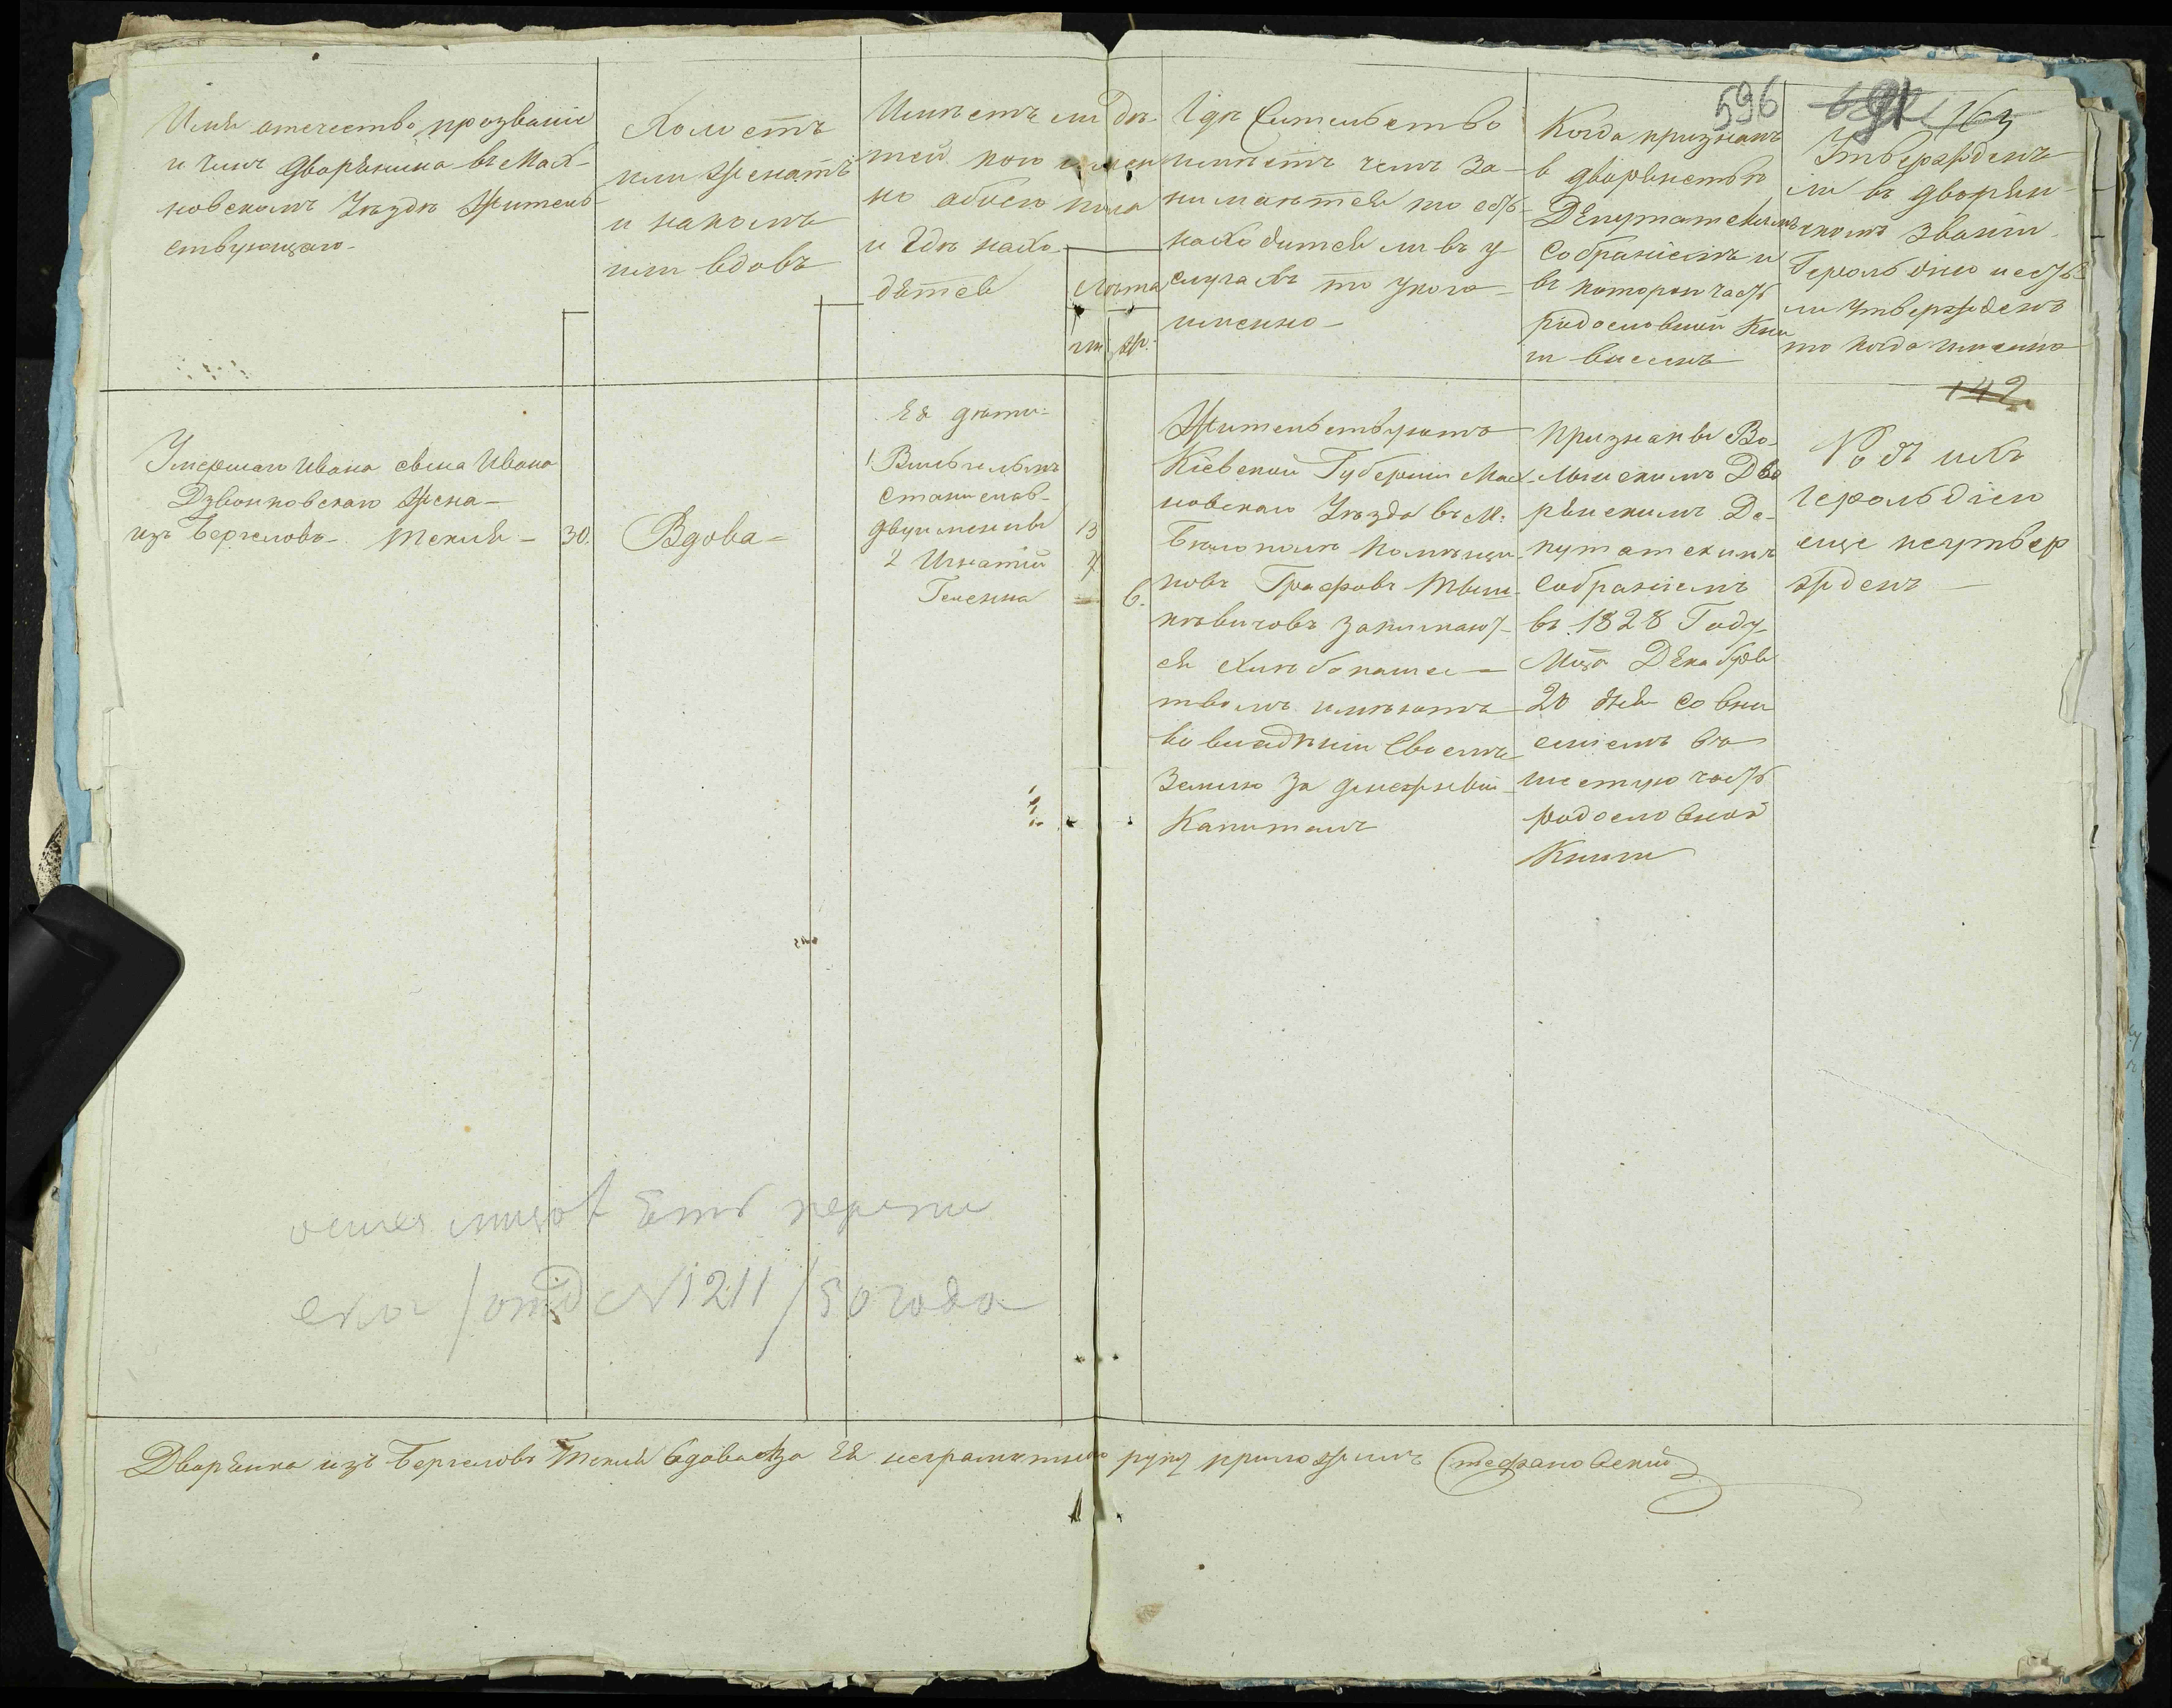 596
163
Имя отечество, прозваніе
и чинъ дворянина въ Мах-
новскомъ Уѣздѣ Житель-
ствующаго-
Холостъ
или женатъ
и накомъ
или вдовъ
Имѣетъ ли дѣ-
тей кого имен
но обоего пола
и гдѣ нахо-
дятся
Лѣта
м.
ж.
Гдѣ Жительство
имѣетъ чемъ за-
нимается то есть
находится ли въ у
слугахъ то укого
именно-
Когда признанъ
в дворянствѣ
Депутатскимъ
Собраніемъ и
въ которой часть
родословной Кни
ги внесенъ
Утвержденъ
ли въ дворян-
скомъ званіи
Герольдіею и есть
ли утвержденъ
то когда именно
142
Умершаго Ивана сына Ивана
Дзвонковскаго жена-
изъ Берчеловъ- Текля-
30.
Вдова-
Ея дѣти:
1 Вильгельмъ
Станислав-
двуименный
13
2 Игнатій
7
Геленна
6.
Жительствуютъ
Кіевской Губерніи Мах-
новскаго Уѣзда въ М:
Бѣлополѣ помѣщи-
ковъ Графовъ Тыш-
кѣвичовъ занимают-
ся хлѣбопаше-
твомъ имѣютъ
во владѣніи Своемъ
Землю за денежный
Капиталъ
признаны Во-
лынскимъ Дво
рянскимъ Де-
путатскимъ
Собраніемъ
въ 1828 Году
Мца Декабря
20 дня со вне
сеніемъ въ
шестую часть
родословной
Книги
Родъ ихъ
Герольдіею
еще неутвер
жденъ-
отд № 1211/50 года
Дворянка изъ Берчеловъ Текля вдова а за Ея неграмотною руку приложилъ Стефановскій